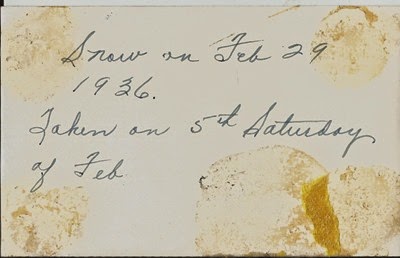 Snow on Feb 29
1936.
Taken on 5th Saturday
of Feb